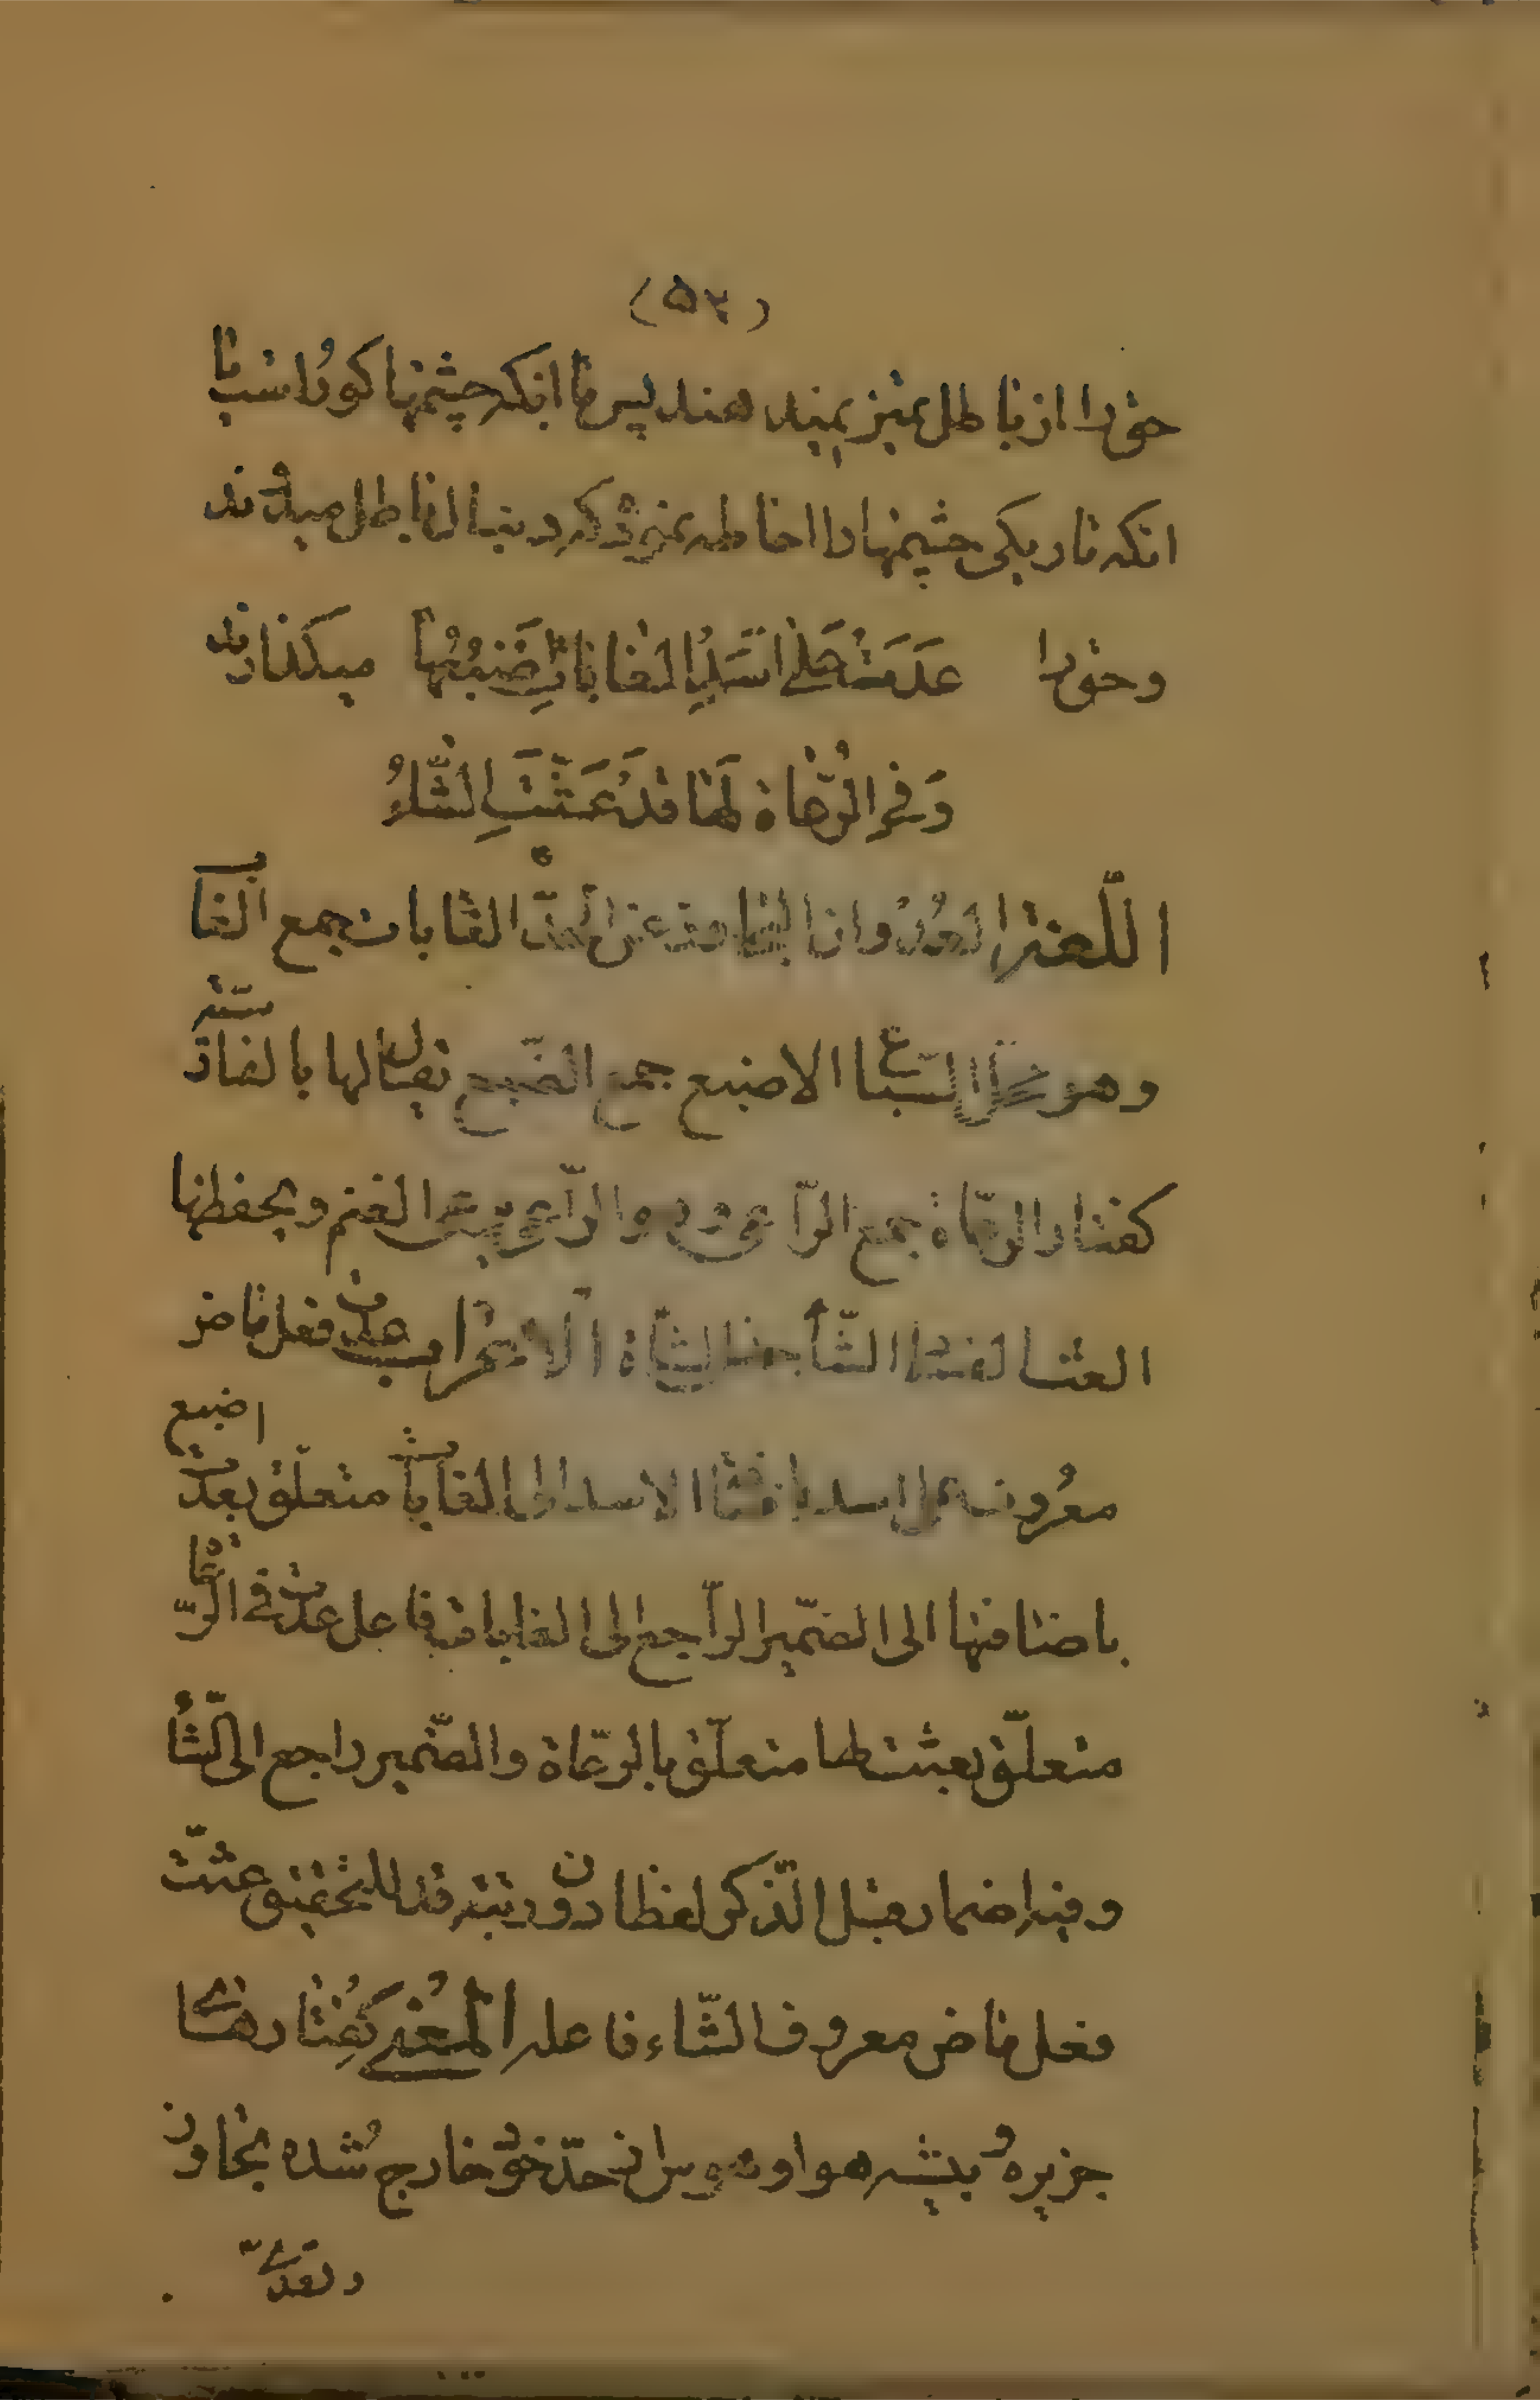 (۵۲)
حق را از باطل تمیز نمیدهند پس یا انکه چشمها کور است یا
انکه تاریکی چشمها را احاطه نموده که دنبال باطل میروند
وحق را عَدَتْ عَلىٰ اَسَدِ الغاباتِ اَضْبُعُها میکذارند
وَفِى الرُّعاةِ لَها قَدْ عَثَتِ الشّاءُ
اللّغة العدوان التجاوز عن الحدّ الغابات جمع الغابة
وهو محلّ السّباع الاضبع جمع الضّبع یقال لها بالفارسیّة
کفتار الرعاة جمع الرّاعی والرّاعی یرعى الغنم ویحفظها
العثا الفساد الشّاء الشاة الاعراب عدت فعل ماض
معروف على اسد باضافة الاسد الى الغابات متعلّق بعدت اضبع
باضافتها الى الضّمیر الرّاجع الى الغابات فاعل عدت فی الرّعاة
متعلّق بعثت لها متعلّق بالرّعاة والضّمیر راجع الى الشّاء
وفیه اضمار قبل الذّکر لفظا دون رتبة قد للتحقیق عثت
فعل ماض معروف الشّاء فاعله المعنى کفتارهای
جزیره و بیشه هوا وهوس از حدّ خود خارج شده تجاوز
وتعدّی